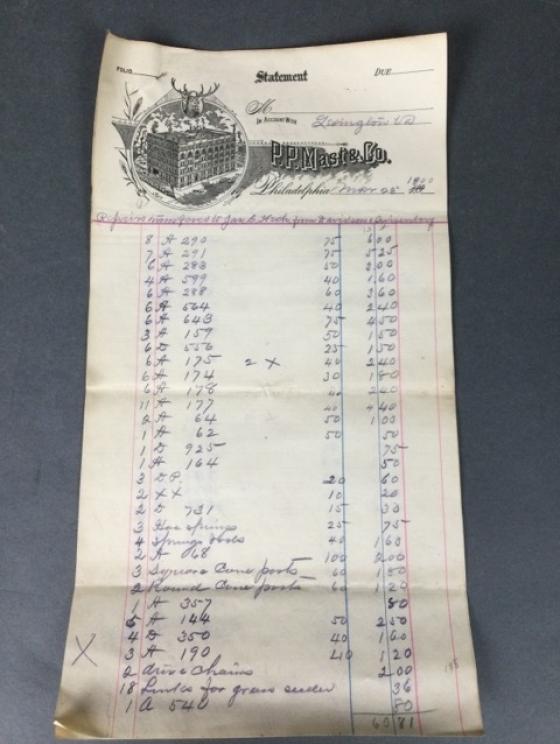 FOLIO
Statement
DUE
M
IN ACCOUNT WITH
Lexington Va
P.P. Mast & Co.
Philadelphia Mar 28 1900
Repairs transfered to Jas from Davidson
8 A 290 75 6 00
7 A 291 75 5 25
6 A 283 50 3 00
4 A 599 40 1 60
6 A 288 60 3 60
6 A 564 40 2 40
6 A 643 75 4 50
3 A 159 50 1 50
6 D 556 25 1 50
6 A 175 2 X 40 2 40
6 A 174 30 1 80
6 A 178 40 2 40
11 A 177 40 4 40
2 A 64 50 1 00
1 A 62 50 50
1 D 925 75
1 A 164 50
3 D P. 20 60
2 X X 10 20
2 D 731 15 30
3 Hoe springs 25 75
4 Springs rods 40 1 60
2 A 68 100 2 00
3 Square Cone posts 60 1 80
2 Round Cone posts 60 1 20
1 A 357 80
5 A 144 50 2 50
4 D 350 40 1 60
3 A 190 40 1 20
2 drive chains 2 00
18 Links for grass seeder 36
1 A 540 80
X